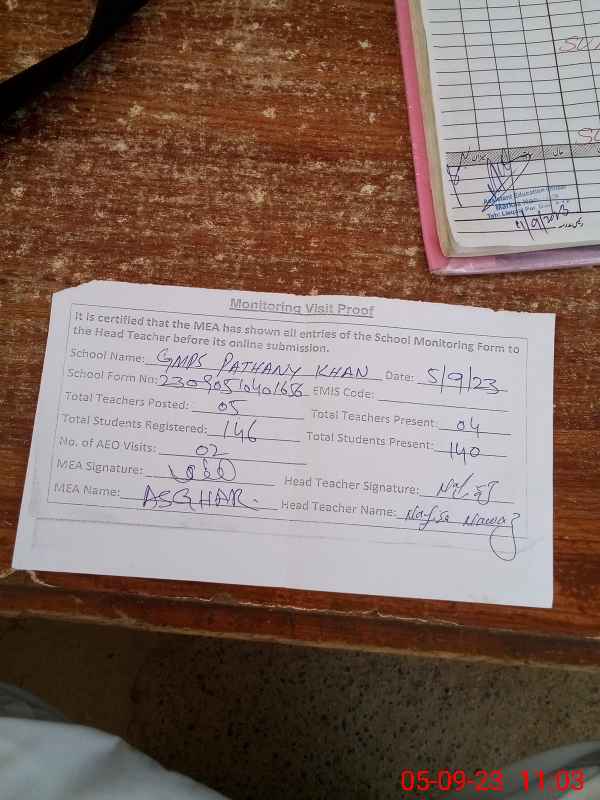 Monitoring Visit Proof
It is certified that the MEA has shown all entries of the School Monitoring Form to
the Head Teacher before its online submission.
School Name: GMPS PATHANY KHAN Date: 5/9/23
School Form No: 23090510401656 EMIS Code:
Total Teachers Posted: 05 Total Teachers Present: 04
Total Students Registered: 146 Total Students Present: 140
No. of AEO Visits: 02
MEA Signature: Head Teacher Signature:
MEA Name: ASGHAR. Head Teacher Name: Nafisa Nawaz
Assistant Education Officer
Markaz
05-09-23 11:03